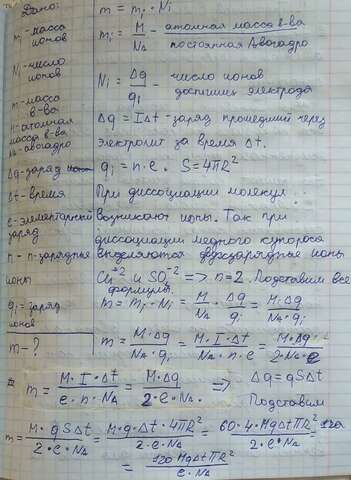 Дано:
mᵢ - масса
ионов
Nᵢ - число
ионов
m - масса
в-ва
M - атомная
масса в-ва
Nₐ - авогадро
Δq - заряд
Δt - время
e - элементарный
заряд
n - n - зарядные
ионы
qᵢ = заряд
ионов
m - ?
m = mᵢ · Nᵢ
mᵢ = M/Nₐ - атомная масса в-ва / постоянная Авогадро
Nᵢ = Δq/qᵢ - число ионов
достигших электрода
Δq = IΔt - заряд прошедший через
электролит за время Δt.
qᵢ = n·e. S = 4πR²
При диссоциации молекул
возникают ионы. Так при
диссоциации медного купороса
выделяются двухзарядные ионы
Cu⁺² и SO₄⁻² => n = 2. Подставим все
формулы.
m = mᵢ · Nᵢ = M/Nₐ · Δq/qᵢ = M·Δq/Nₐ·qᵢ
m = M·Δq/Nₐ·qᵢ = M·I·Δt/Nₐ·n·e = M·Δq/2·Nₐ·e
m = M·I·Δt/e·n·Nₐ = M·Δq/2·e·Nₐ => Δq = qSΔt
Подставим
m = M·qSΔt/2·e·Nₐ = M·q·Δt·4πR²/2·e·Nₐ = 60·4·MqΔtπR²/2·e·Nₐ =
= 120MqΔtπR²/e·Nₐ